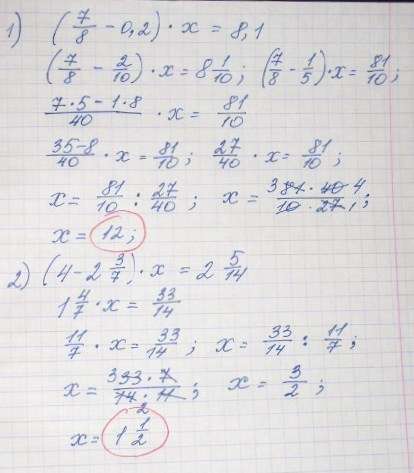 1) (7/8 - 0,2) · x = 8,1
(7/8 - 2/10) · x = 8 1/10; (7/8 - 1/5) · x = 81/10;
(7·5 - 1·8)/40 · x = 81/10
(35-8)/40 · x = 81/10; 27/40 · x = 81/10;
x = 81/10 : 27/40; x = 3 81·40 4/10·27 1;
x = 12;
2) (4 - 2 3/7) · x = 2 5/14
1 4/7 · x = 33/14
11/7 · x = 33/14; x = 33/14 : 11/7;
x = 3 33·7/14·11 2; x = 3/2;
x = 1 1/2